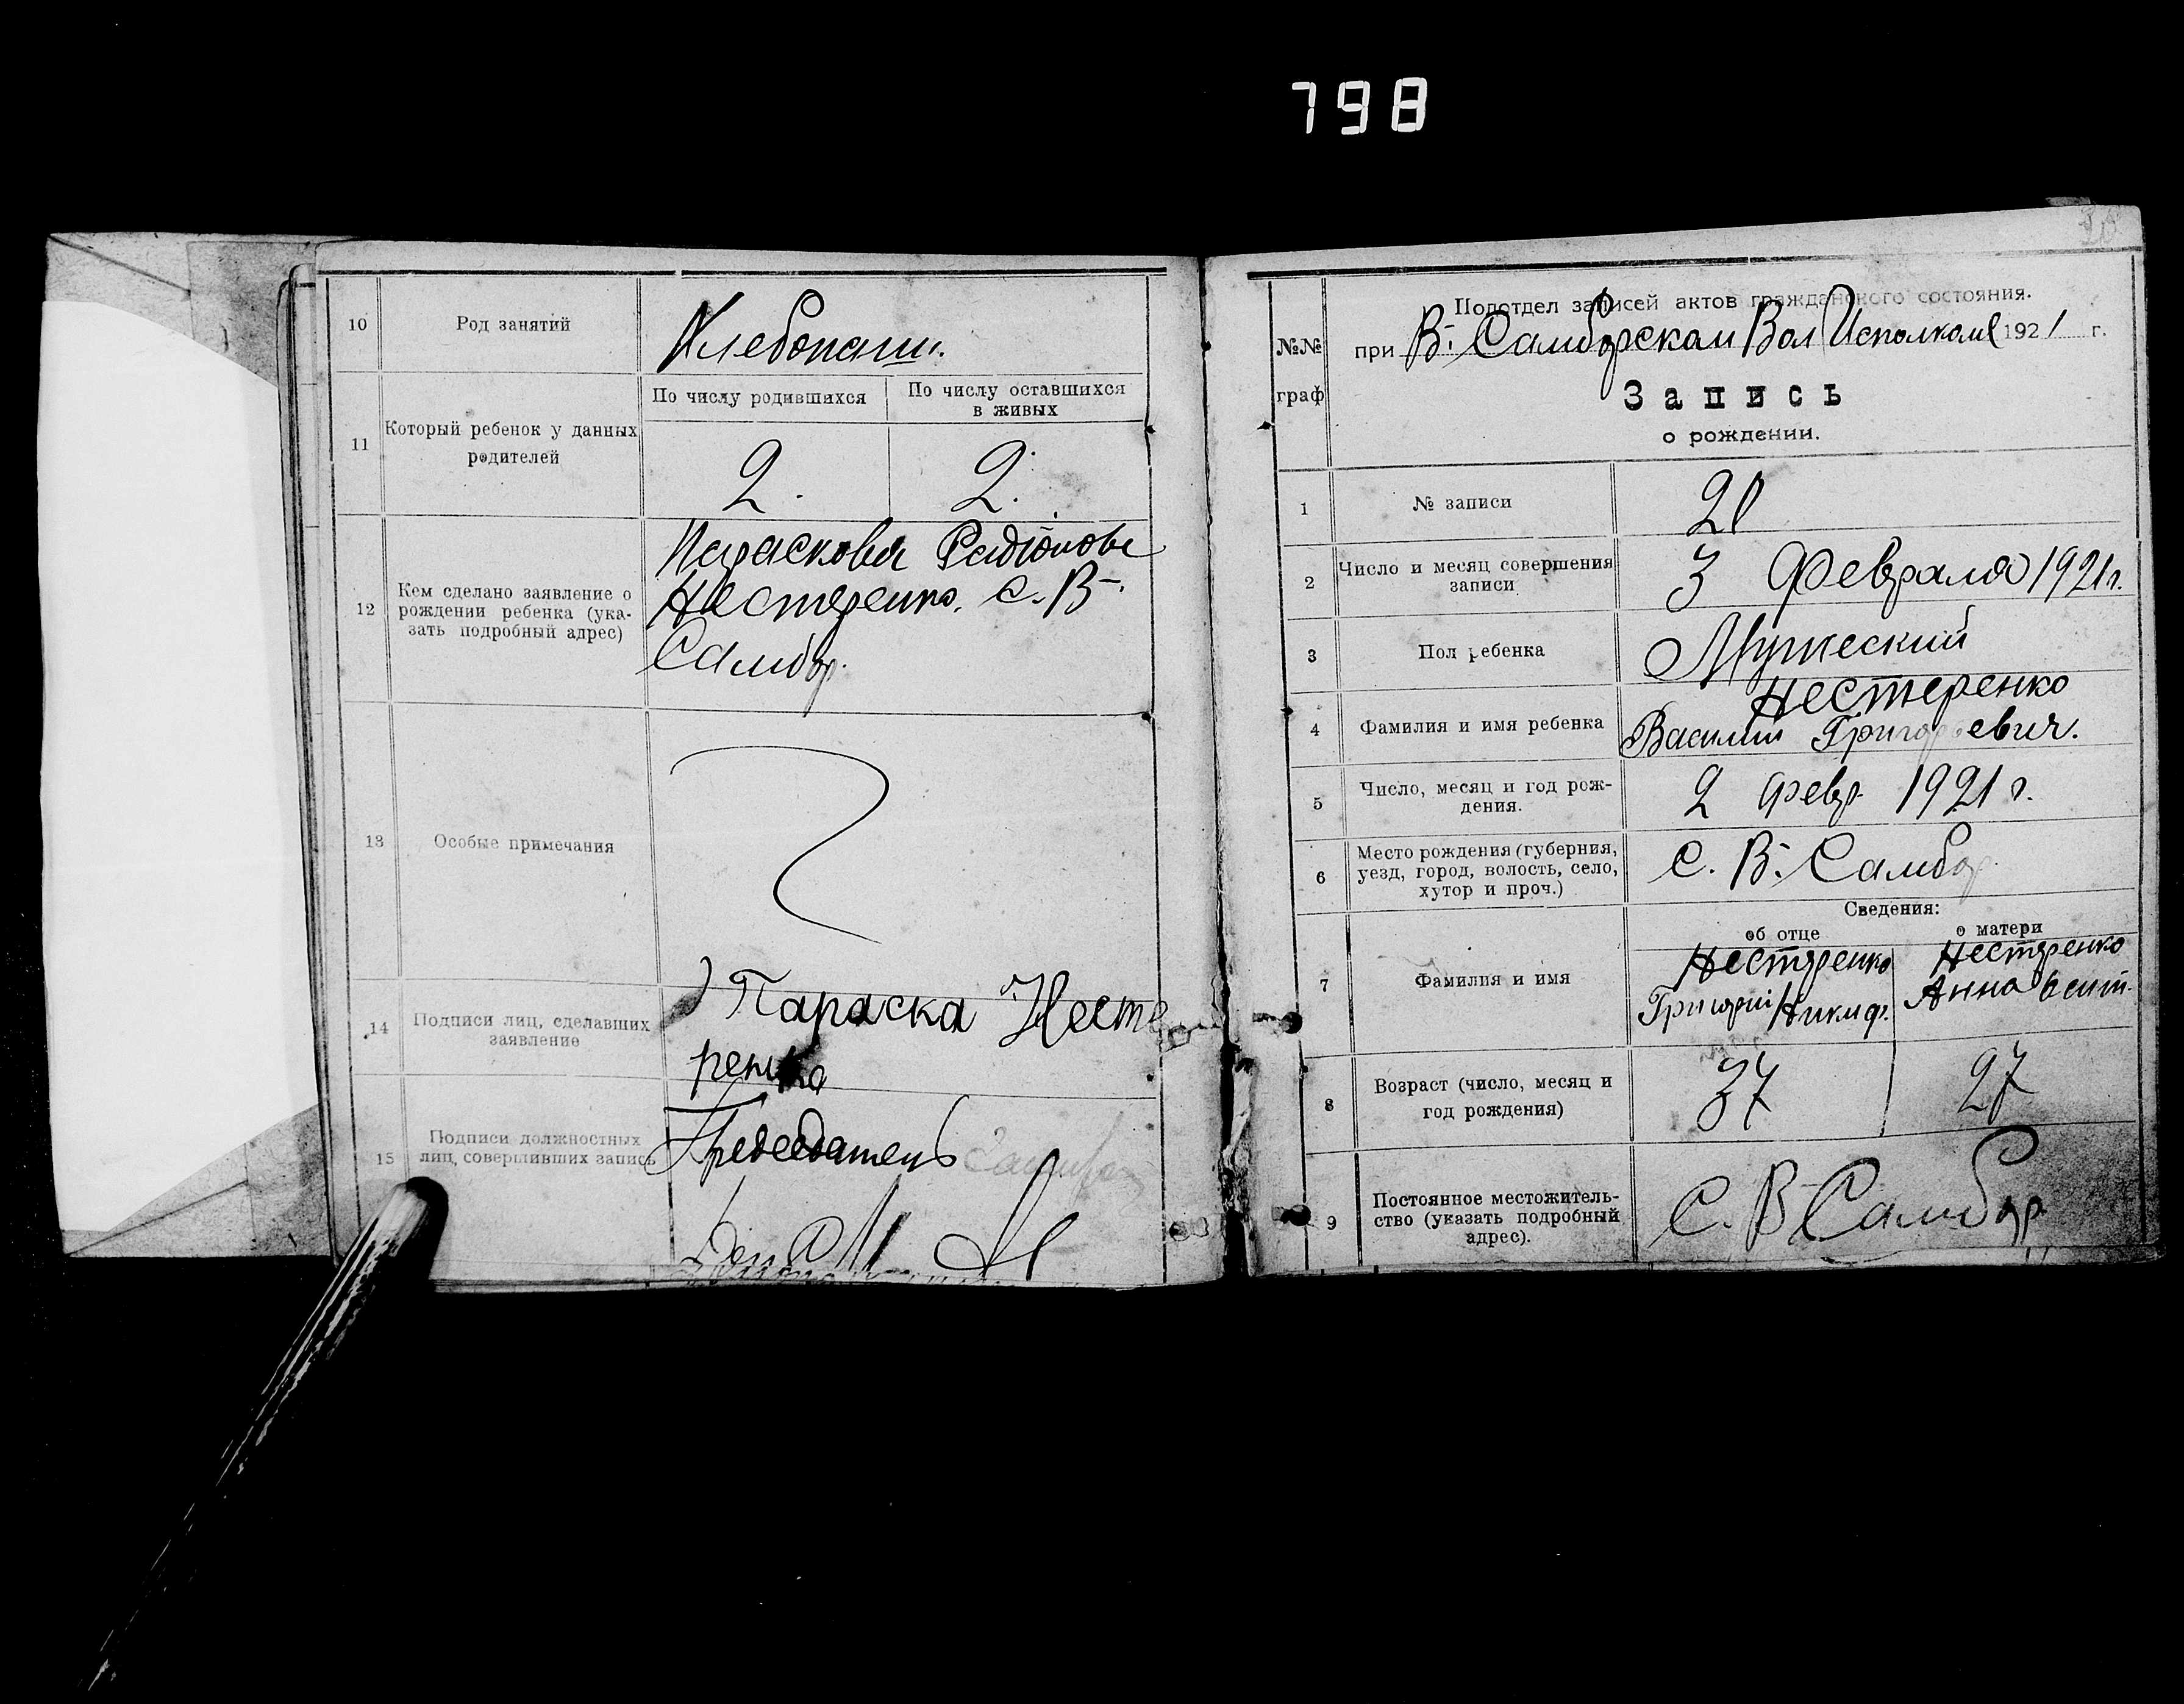 798
10
Род занятий
Хлебопаш.
11
Который ребенок у данных
родителей
По числу родившихся
По числу оставшихся
в живых
2.
2.
12
Кем сделано заявление о
рождении ребенка (ука-
зать подробный адрес)
Парасковья Радіонова
Нестеренко. С. В-
Самбор.
13
Особые примечания
14
Подписи лиц, сделавших
заявление
Параска Несте
ренка
15
Подписи должностных
лиц, совершивших запись
Председатель
№№
граф
Подотдел записей актов гражданского состояния.
при В-Самборском Вол Исполкоме 1921 г.
Запись
о рождении.
1
№ записи
20
2
Число и месяц совершения
записи
3 Февраля 1921 г.
3
Пол ребенка
Мужеский
4
Фамилия и имя ребенка
Нестеренко
Василий Григорьевич.
5
Число, месяц и год рож-
дения.
2 февр. 1921 г.
6
Место рождения (губерния,
уезд, город, волость, село,
хутор и проч.)
С. В-Самбор
Сведения:
об отце
о матери
7
Фамилия и имя
Нестеренко
Григорій Никиф.
Нестеренко
Анна
8
Возраст (число, месяц и
год рождения)
37
27
9
Постоянное местожитель-
ство (указать подробный
адрес).
С. В Самбор